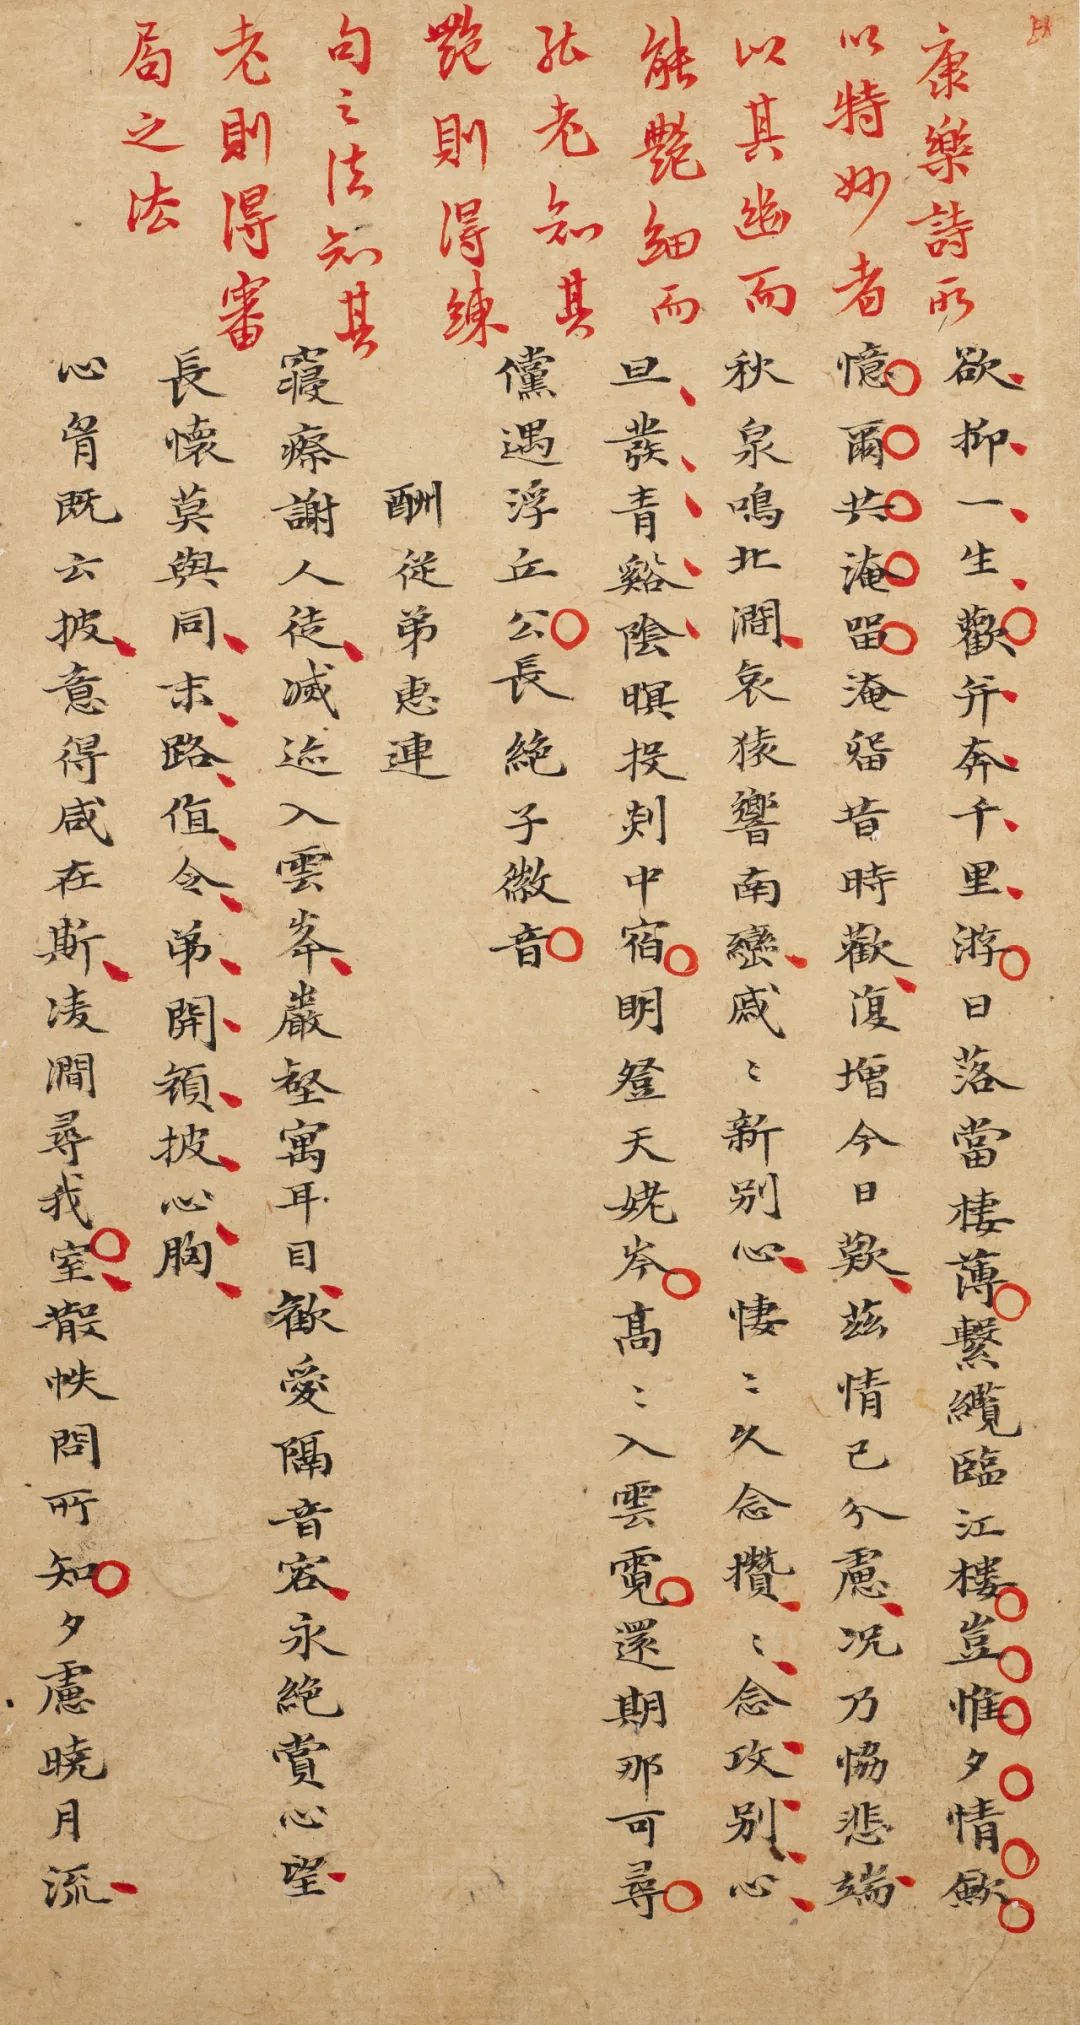 康樂詩所
以特妙者
以其幽而
能艷細而
能老知其
艷則得練
句之法知其
老則得審
局之法
欲抑一生歡并奔千里游日落當棲薄繫纜臨江樓豈惟夕情歛
憶爾共淹留淹留昔時歡復增今日歎茲情已分慮况乃協悲端
秋泉鳴北澗哀猿響南巒戚〻新别心悽〻久念攢〻念攻别心
旦發青谿陰暝投剡中宿明登天姥岑高〻入雲霓還期那可尋
儻遇浮丘公長絶子徽音
酬從弟惠連
寢瘵謝人徒滅迹入雲峯巖壑寓耳目歡愛隔音容永絶賞心望
長懷莫與同末路值令弟開顔披心胸
心胷既云披意得咸在斯凌澗尋我室散帙問所知夕慮曉月流